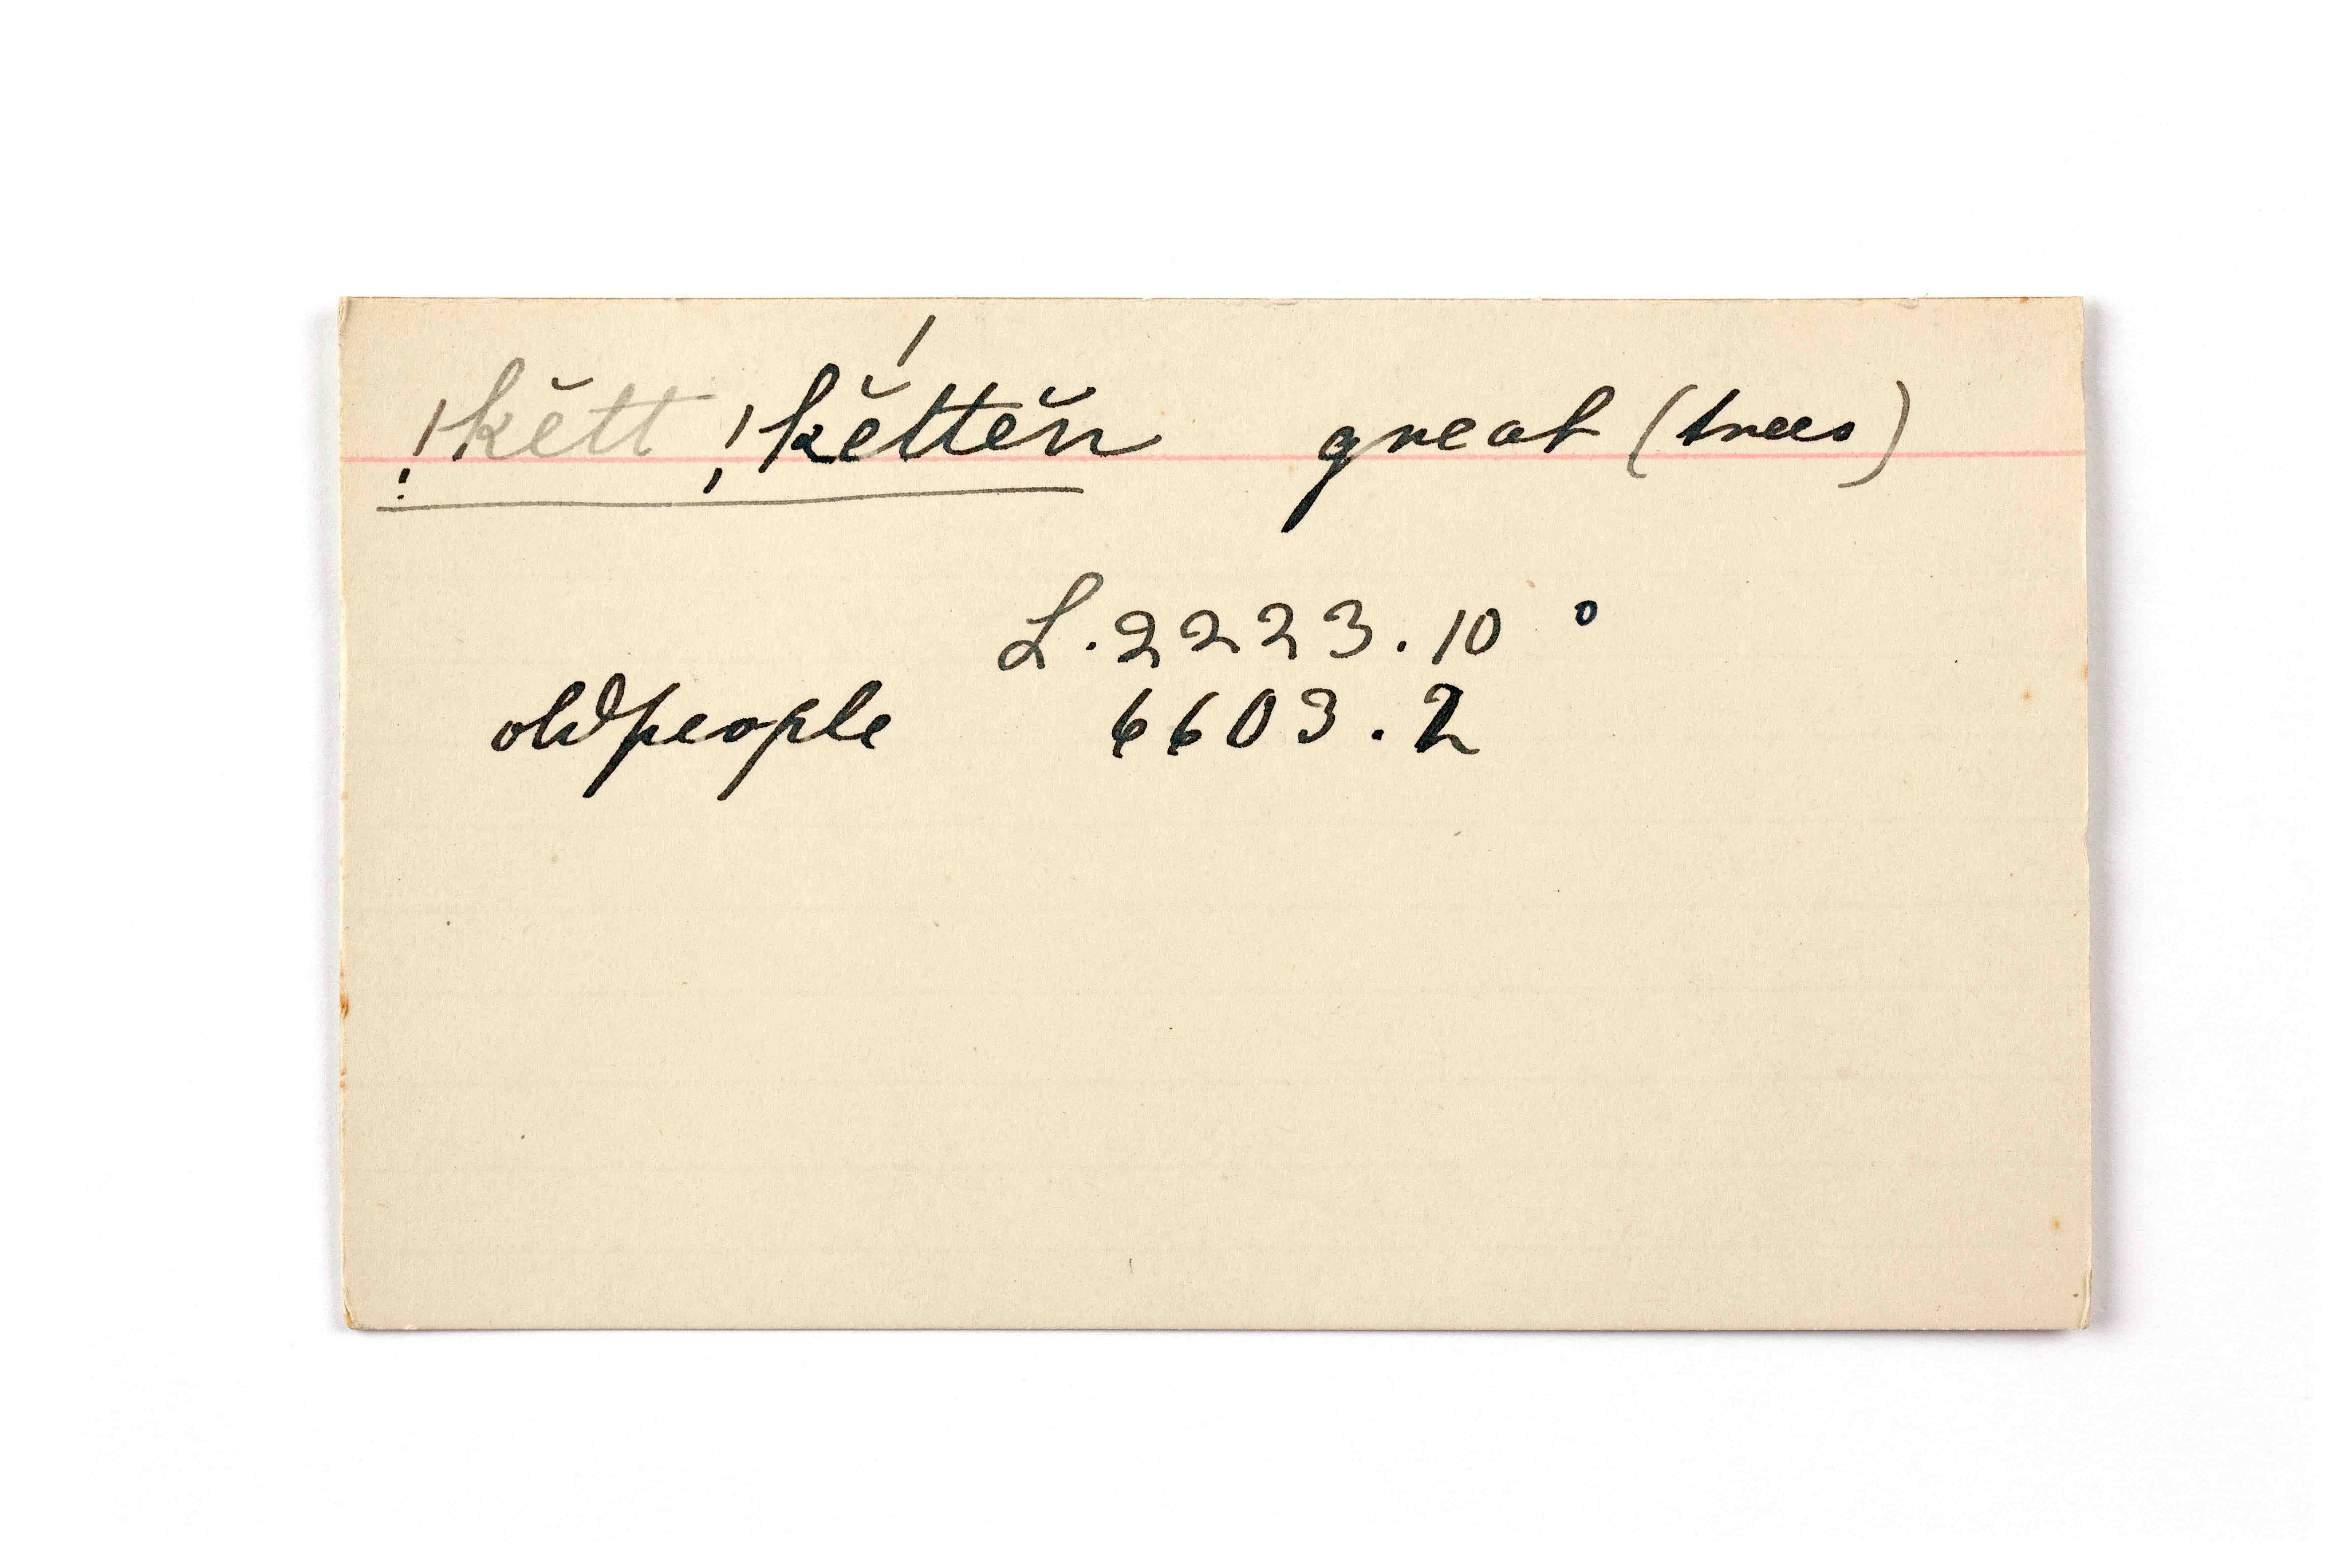 !kĕtt !kĕ́ttĕn great (trees)
L. 2223. 10 °
old people 6603. 2